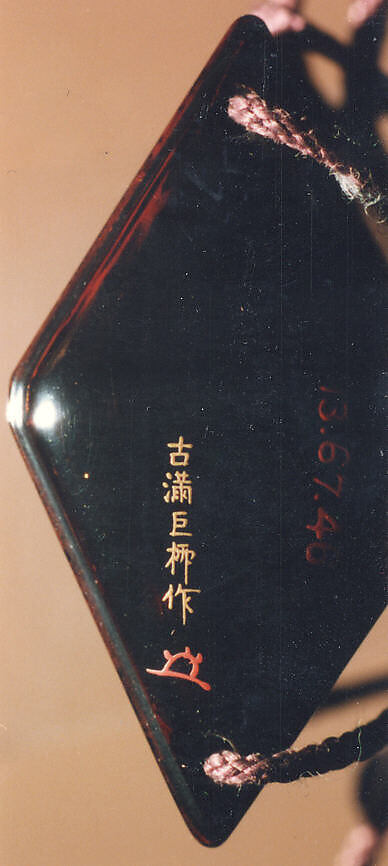 古滿巨柳作
13.67.46